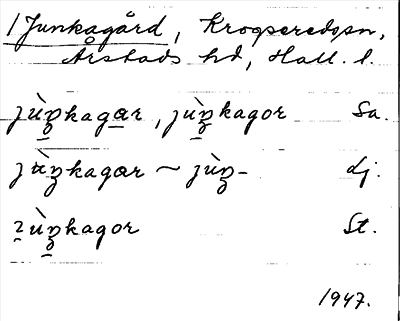 1 Junkagård, Krogseredssn,
Årstads hd, Hall. l.
jùŋkagar, jùŋkagor Sa.
jùŋkagar ~ jùŋ- Lj.
ùŋkagor St.
1947.